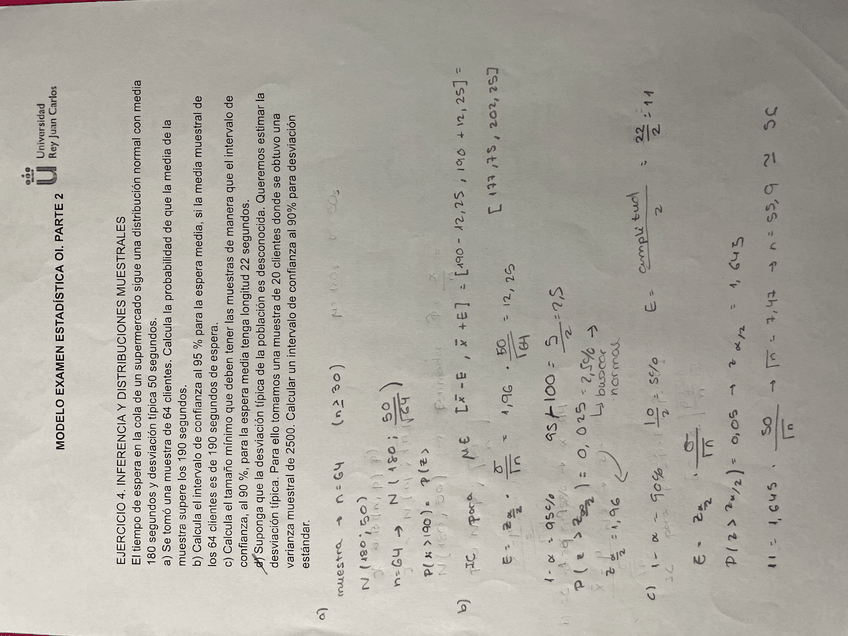 Universidad
Rey Juan Carlos
MODELO EXAMEN ESTADÍSTICA OI. PARTE 2
EJERCICIO 4. INFERENCIA Y DISTRIBUCIONES MUESTRALES
El tiempo de espera en la cola de un supermercado sigue una distribución normal con media
180 segundos y desviación típica 50 segundos.
a) Se tomó una muestra de 64 clientes. Calcula la probabilidad de que la media de la
muestra supere los 190 segundos.
b) Calcula el intervalo de confianza al 95 % para la espera media, si la media muestral de
los 64 clientes es de 190 segundos de espera.
c) Calcula el tamaño mínimo que deben tener las muestras de manera que el intervalo de
confianza, al 90 %, para la espera media tenga longitud 22 segundos.
d) Suponga que la desviación típica de la población es desconocida. Queremos estimar la
desviación típica. Para ello tomamos una muestra de 20 clientes donde se obtuvo una
varianza muestral de 2500. Calcular un intervalo de confianza al 90% para desviación
estándar.
a)
muestra → n=64 (n≥30)
N(180; 50)
n=64 → N(180; 50/√64)
P(x>190) = P(z>
b) IC para μ∈ [x̄-E, x̄+E] = [190-12,25, 190+12,25] =
[177,75, 202,25]
E = zα/2 · σ/√n = 1,96 · 50/√64 = 12,25
1-α = 95% 95-100 = 5/2 = 2,5
P(z > zα/2) = 0,025 = 2,5% →
↳ buscar
normal
zα/2 = 1,96
c) 1-α = 90% 10/2 = 5% E = amplitud/2 = 22/2 = 11
E = zα/2 · σ/√n
P(z > zα/2) = 0,05 → zα/2 = 1,645
11 = 1,645 · 50/√n → √n = 7,47 → n = 55,9 ≃ 56